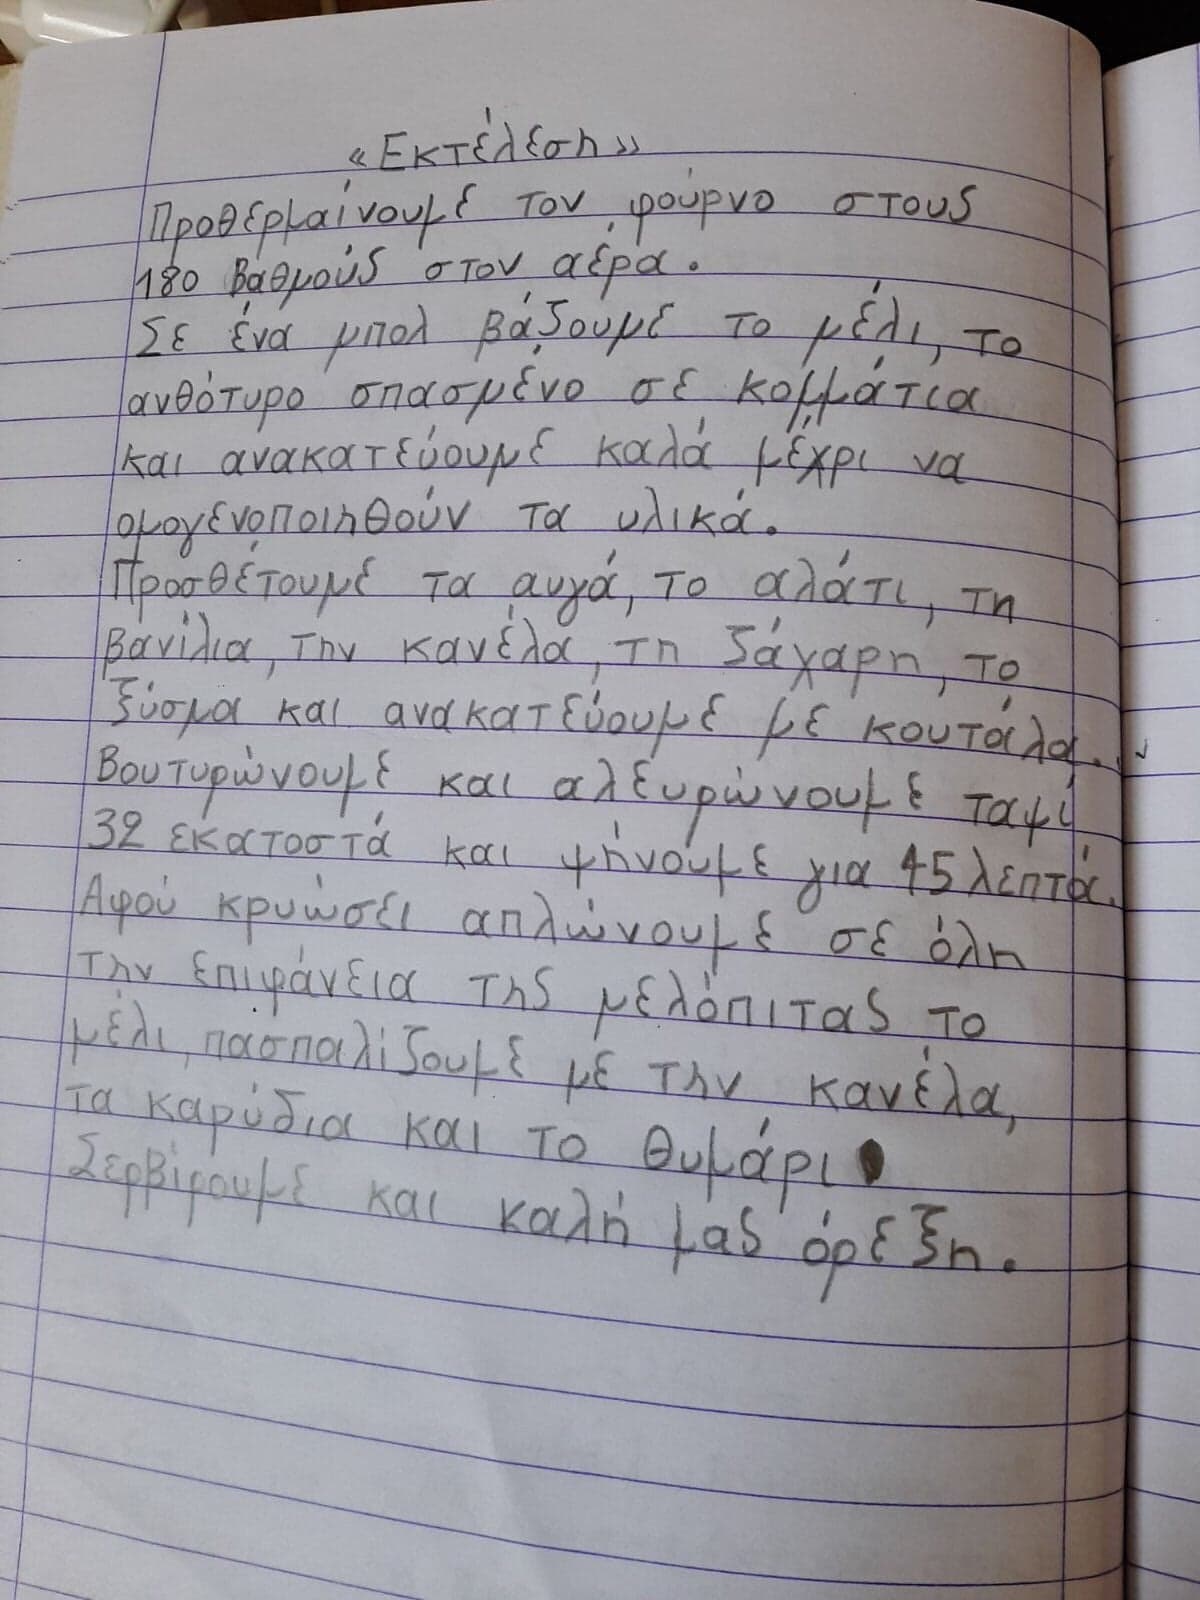 «Εκτέλεση»
Προθερμαίνουμε τον φούρνο στους
180 βαθμούς στον αέρα.
Σε ένα μπολ βάζουμε το μέλι, το
ανθότυρο σπασμένο σε κομμάτια
και ανακατεύουμε καλά μέχρι να
ομογενοποιηθούν τα υλικά.
Προσθέτουμε τα αυγά, το αλάτι, τη
βανίλια, την κανέλα, τη ζάχαρη, το
ξύσμα και ανακατεύουμε με κουτάλα.
Βουτυρώνουμε και αλευρώνουμε ταψί
32 εκατοστά και ψήνουμε για 45 λεπτά.
Αφού κρυώσει απλώνουμε σε όλη
την επιφάνεια της μελόπιτας το
μέλι, πασπαλίζουμε με την κανέλα,
τα καρύδια και το θυμάρι.
Σερβίρουμε και καλή μας όρεξη.